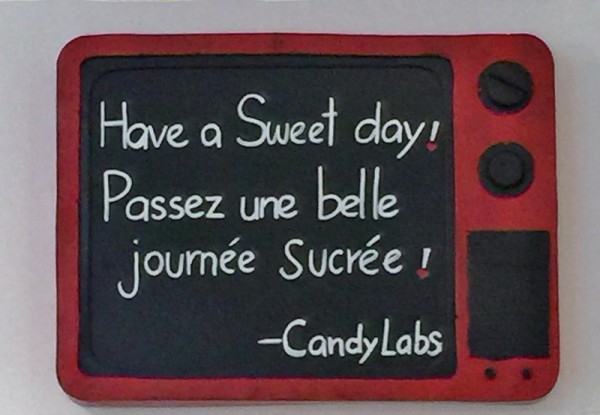 Have a Sweet day!
Passez une belle
journée Sucrée !
-CandyLabs